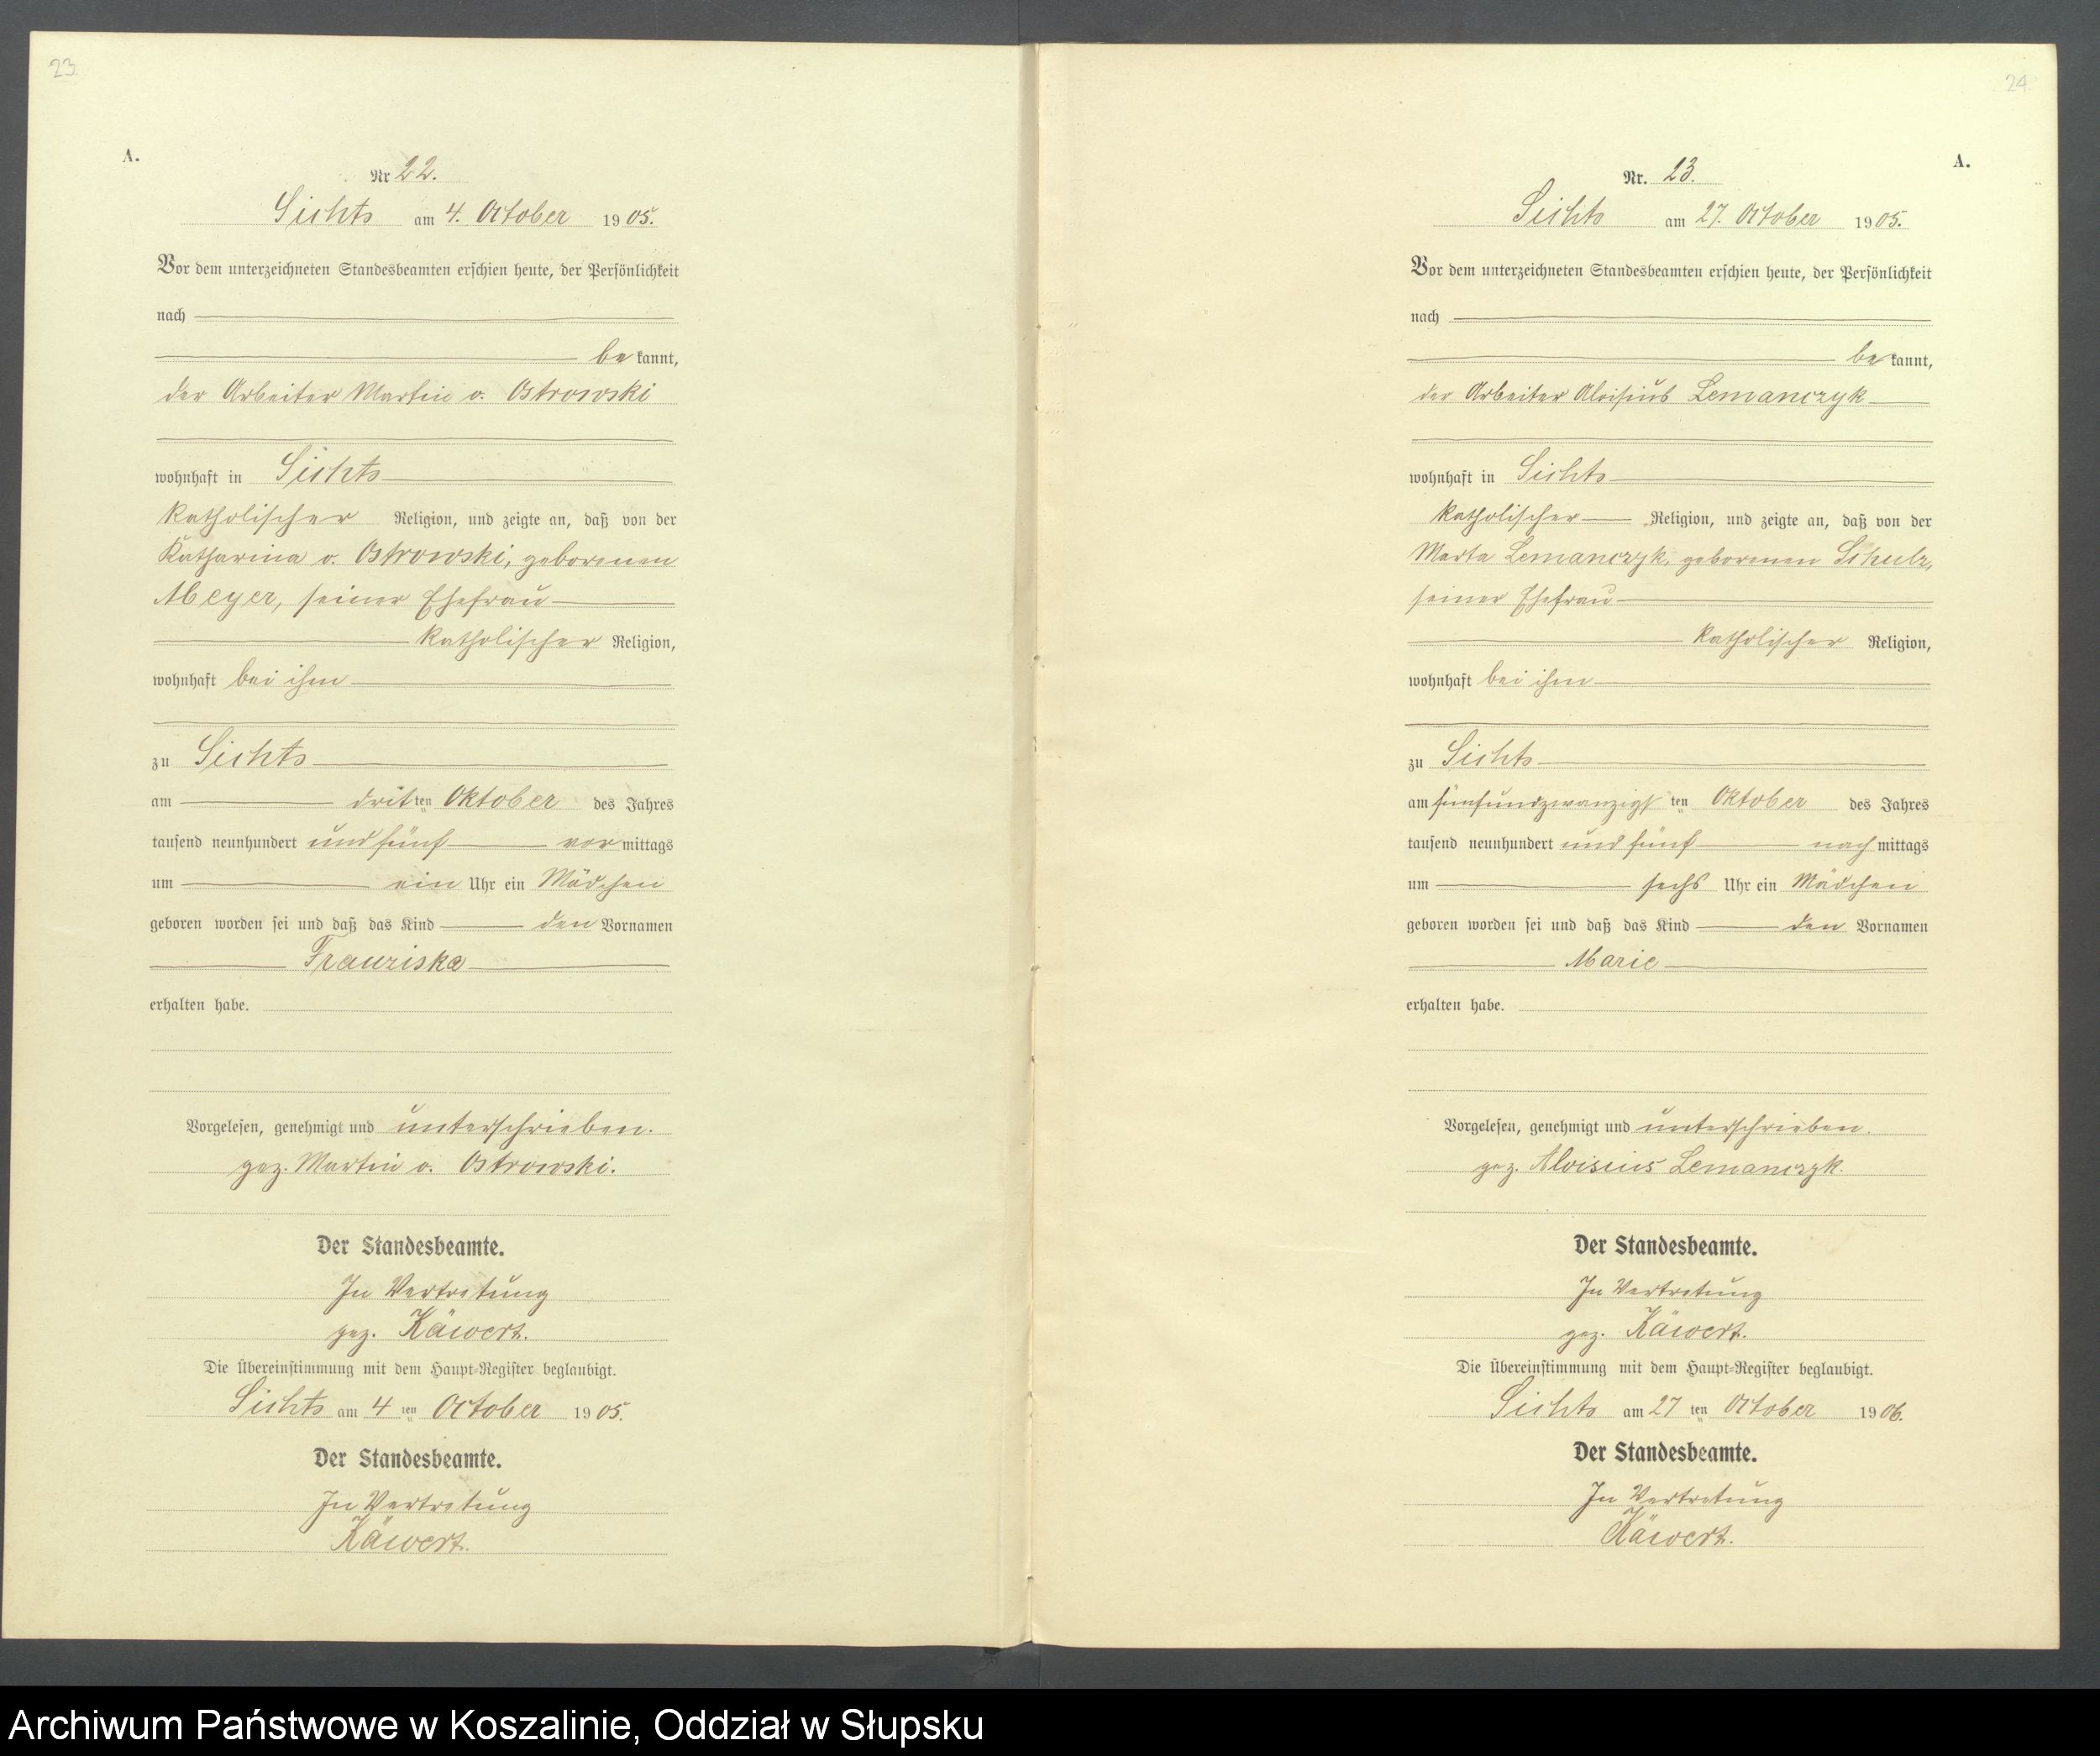 23
A.
Nr 22.
Sichts am 4. October 1905.
Vor dem unterzeichneten Standesbeamten erschien heute, der Persönlichkeit
nach
bekannt,
der Arbeiter Martin v. Ostrowski
wohnhaft in Sichts
katholischer Religion, und zeigte an, daß von der
Katharina v. Ostrowski, geborenen
Meyer, seiner Ehefrau
katholischer Religion,
wohnhaft bei ihm
zu Sichts
am dritten Oktober des Jahres
tausend neunhundert und fünf vormittags
um ein Uhr ein Mädchen
geboren worden sei und daß das Kind den Vornamen
Franziska
erhalten habe.
Vorgelesen, genehmigt und unterschrieben.
gez. Martin v. Ostrowski.
Der Standesbeamte.
In Vertretung
gez. Käwert.
Die Übereinstimmung mit dem Haupt-Register beglaubigt.
Sichts am 4 ten October 1905.
Der Standesbeamte.
In Vertretung
Käwert.
24
A.
Nr. 23.
Sichts am 27. October 1905.
Vor dem unterzeichneten Standesbeamten erschien heute, der Persönlichkeit
nach
bekannt,
der Arbeiter Aloisius Lemanczyk
wohnhaft in Sichts
katholischer Religion, und zeigte an, daß von der
Marta Lemanczyk, geborenen Schulz,
seiner Ehefrau
katholischer Religion,
wohnhaft bei ihm
zu Sichts
am fünfundzwanzigsten Oktober des Jahres
tausend neunhundert und fünf nachmittags
um sechs Uhr ein Mädchen
geboren worden sei und daß das Kind den Vornamen
Marie
erhalten habe.
Vorgelesen, genehmigt und unterschrieben.
gez. Aloisius Lemanczyk.
Der Standesbeamte.
In Vertretung
gez. Käwert.
Die Übereinstimmung mit dem Haupt-Register beglaubigt.
Sichts am 27 ten October 1906.
Der Standesbeamte.
In Vertretung
Käwert.
Archiwum Państwowe w Koszalinie, Oddział w Słupsku